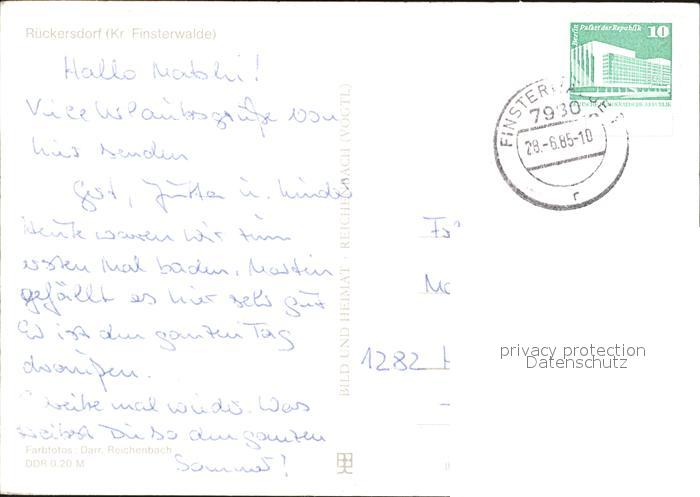 Rückersdorf (Kr. Finsterwalde)
Hallo
Viele Urlaubsgrüße von
hier senden
Gert, Jutta u. Kinder
Heute waren wir zum
ersten Mal baden. Martin
gefällt es hier sehr gut
Er ist den ganzen Tag
draußen.
mal wieder. Was
Du so den ganzen
Sommer!
Farbfotos: Darr, Reichenbach
DDR 0.20 M
BILD UND HEIMAT · REICHENBACH (VOGTL)
Berlin Palast der Republik
10
DEUTSCHE DEMOKRATISCHE REPUBLIK
7980
28.-6.85-10
r
1282
privacy protection
Datenschutz